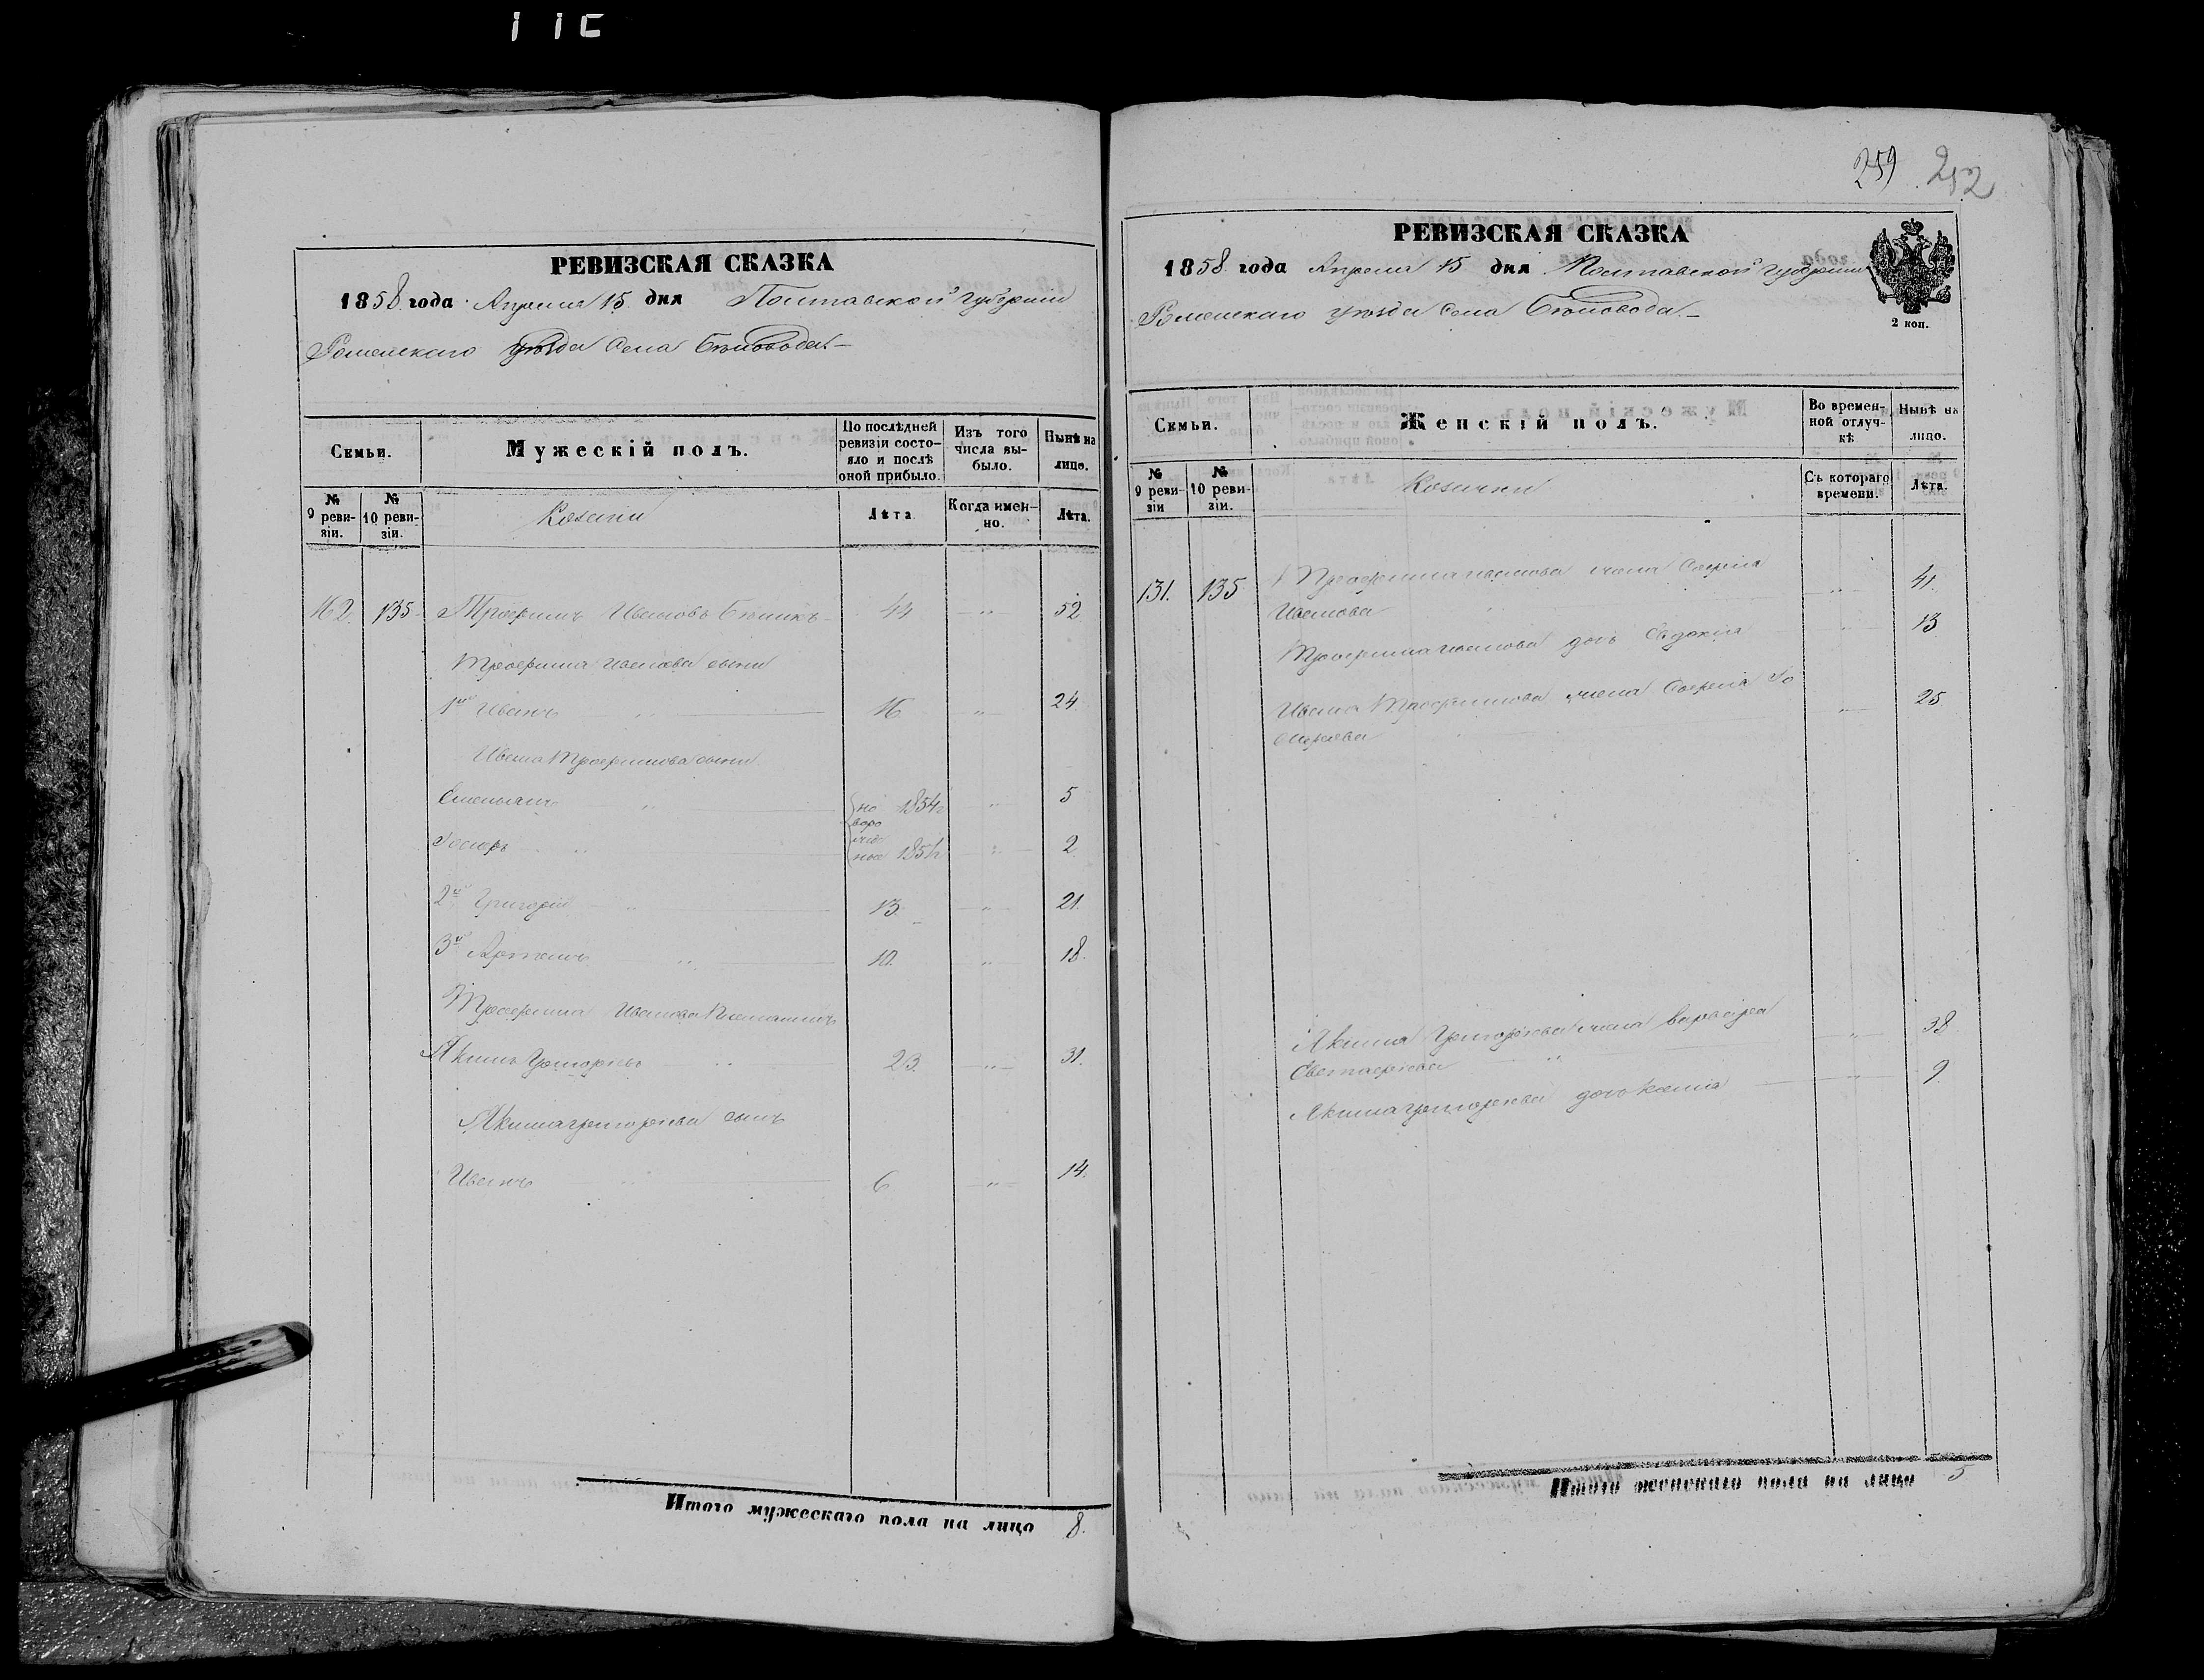 259 252
РЕВИЗСКАЯ СКАЗКА
1858 года Апреля 15 дня Полтавской Губернии
Роменскаго уѣзда Села Бѣловода
Семьи.
Мужескій полъ.
По послѣдней ревизіи состояло и послѣ оной прибыло.
Изъ того числа выбыло.
Нынѣ на лицо.
№ 9 ревизіи.
№ 10 ревизіи.
Козаки
Лѣта
Когда именно.
Лѣта.
162. 135 Трофимъ Ивановъ 44 „ 52
Трофима Иванова сыни
1й Иванъ „ 16 „ 24
Ивана Трофимова сыни
Емельянъ „ 1854 „ 5
„ „ 2
2й Григорій „ 13 „ 21.
3й Артемъ „ 10. „ 18.
Трофима Иванова племянникъ
Якимъ Григорьевъ „ 23. „ 31.
Якима Григорьева сынъ
Иванъ „ 6 „ 14.
Итого мужескаго пола на лицо 8.
РЕВИЗСКАЯ СКАЗКА
1858 года Апреля 15 дня Полтавской Губернии
Роменскаго уѣзда Села Бѣловода
2 коп.
Семьи.
Женскій полъ.
Во временной отлучкѣ
Нынѣ на лицо.
№ 9 ревизіи
№ 10 ревизіи.
Козачки
Съ котораго времени.
Лѣта.
131. 135 Трофима Иванова жена
Иванова „ „ 41.
Трофима Иванова дочь Евдокія „ 13
Ивана Трофимова жена
„ 25
Якима Григорьева жена Варвара
„ „ 38
Якима Григорьева дочь „ 9
Итого женскаго пола на лицо 5